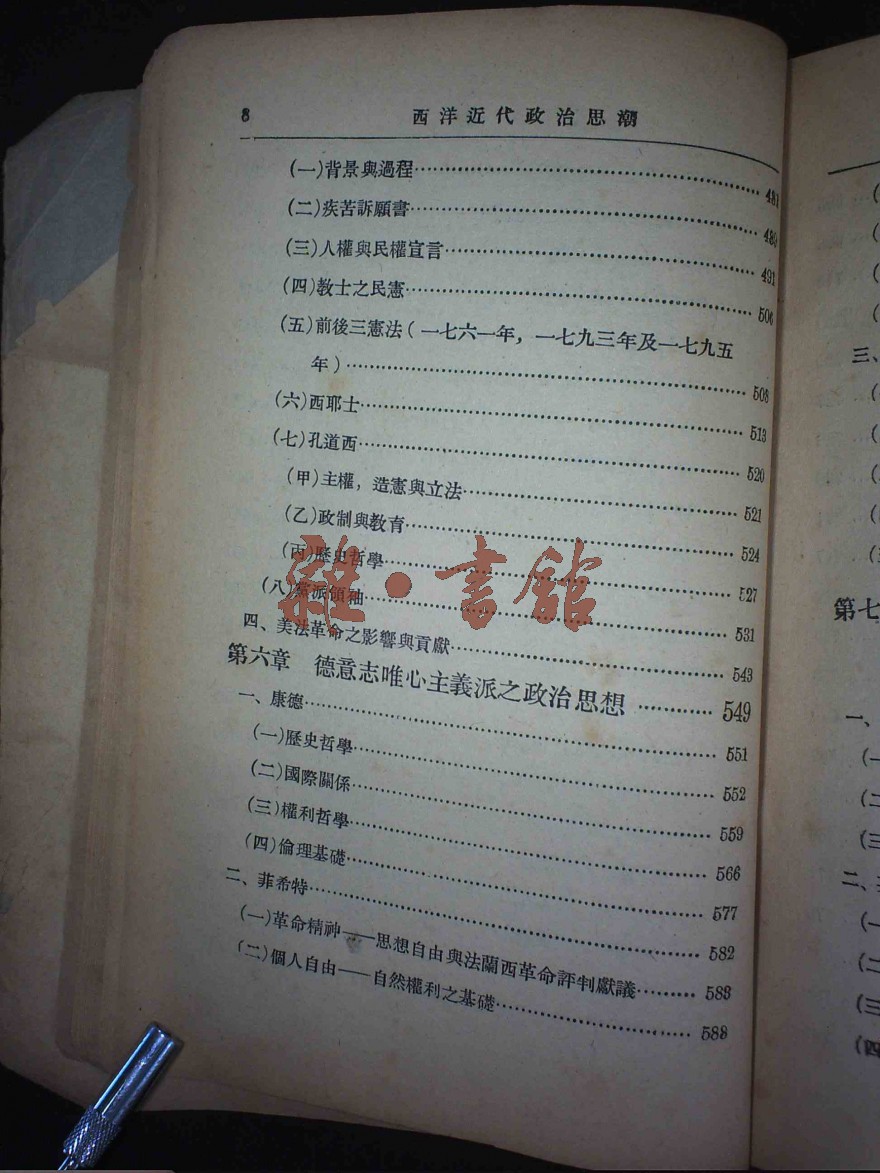 8 西洋近代政治思潮
(一)背景與過程……481
(二)疾苦訴願書……489
(三)人權與民權宣言……491
(四)教士之民憲……506
(五)前後三憲法(一七六一年，一七九三年及一七九五
年)……508
(六)西耶士……513
(七)孔道西……520
(甲)主權，造憲與立法……521
(乙)政制與教育……524
(丙)歷史哲學……527
(八)黨派領袖……531
四、美法革命之影響與貢獻……543
第六章 德意志唯心主義派之政治思想……549
一、康德……551
(一)歷史哲學……552
(二)國際關係……559
(三)權利哲學……566
(四)倫理基礎……577
二、菲希特……582
(一)革命精神——思想自由與法蘭西革命評判獻議……583
(二)個人自由——自然權利之基礎……588
雜·書館
三、
第七
一、
(一
(二
(三
二、
(一
(二
(三
(四